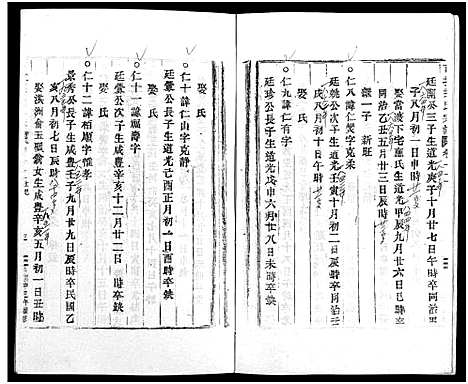 廷蘭公三子生道光庚子十月廿七日午時卒同治
子八月初一日申時
娶當渡下宅施氏生道光甲辰九月廿六日巳時
同治乙丑五月廿三日辰時
繼一子 新旺
仁八諱仁燮字克柔
廷桃公次子生道光壬寅十月初二日午時卒
戌八月初十日辰時
仁九諱仁有字
廷珍公長子生道光戊申六月廿八日未時卒缺
娶氏
仁十諱仁山字克靜
廷彙公長子生道光己酉正月初一日酉時卒缺
娶氏
仁十一諱福壽字
廷彙公次子生咸豐辛亥十二月廿二日 時卒缺
娶氏
仁十二諱栢順字惟孝
景秀公長子生咸豐壬子九月廿九日辰時卒民國乙
亥八月初七日辰時
娶洪洲俞玉 翁女生咸豐辛亥五月初一日丑時